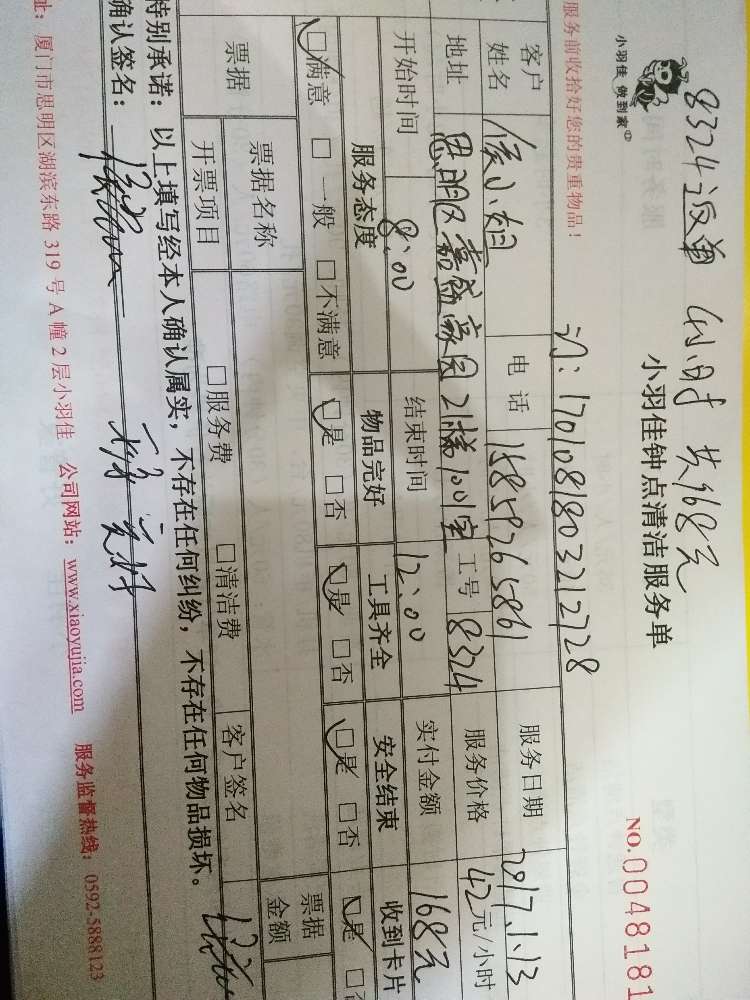 8324返单 4小时 共168元
小羽佳 做到家
小羽佳钟点清洁服务单
NO.0048181
服务前收拾好您的贵重物品!
订:1701081803212728
客户姓名 侯小姐 电话 15859265861 服务日期 2017.1.13
地址 思明区嘉盛豪园21梯1001室 工号 8324 服务价格 42元/小时
开始时间 8:00 结束时间 12:00 实付金额 168元
服务态度 物品完好 工具齐全 安全结束 收到卡片
□满意 □一般 □不满意 □是 □否 □是 □否 □是 □否 □是 □否
票据 票据名称 票据金额
开票项目 □服务费 □清洁费 客户签名
特别承诺:以上填写经本人确认属实,不存在任何纠纷,不存在任何物品损坏。
确认签名:
址:厦门市思明区湖滨东路 319 号 A 幢 2 层小羽佳 公司网站:www.xiaoyujia.com 服务监督热线:0592-5888123